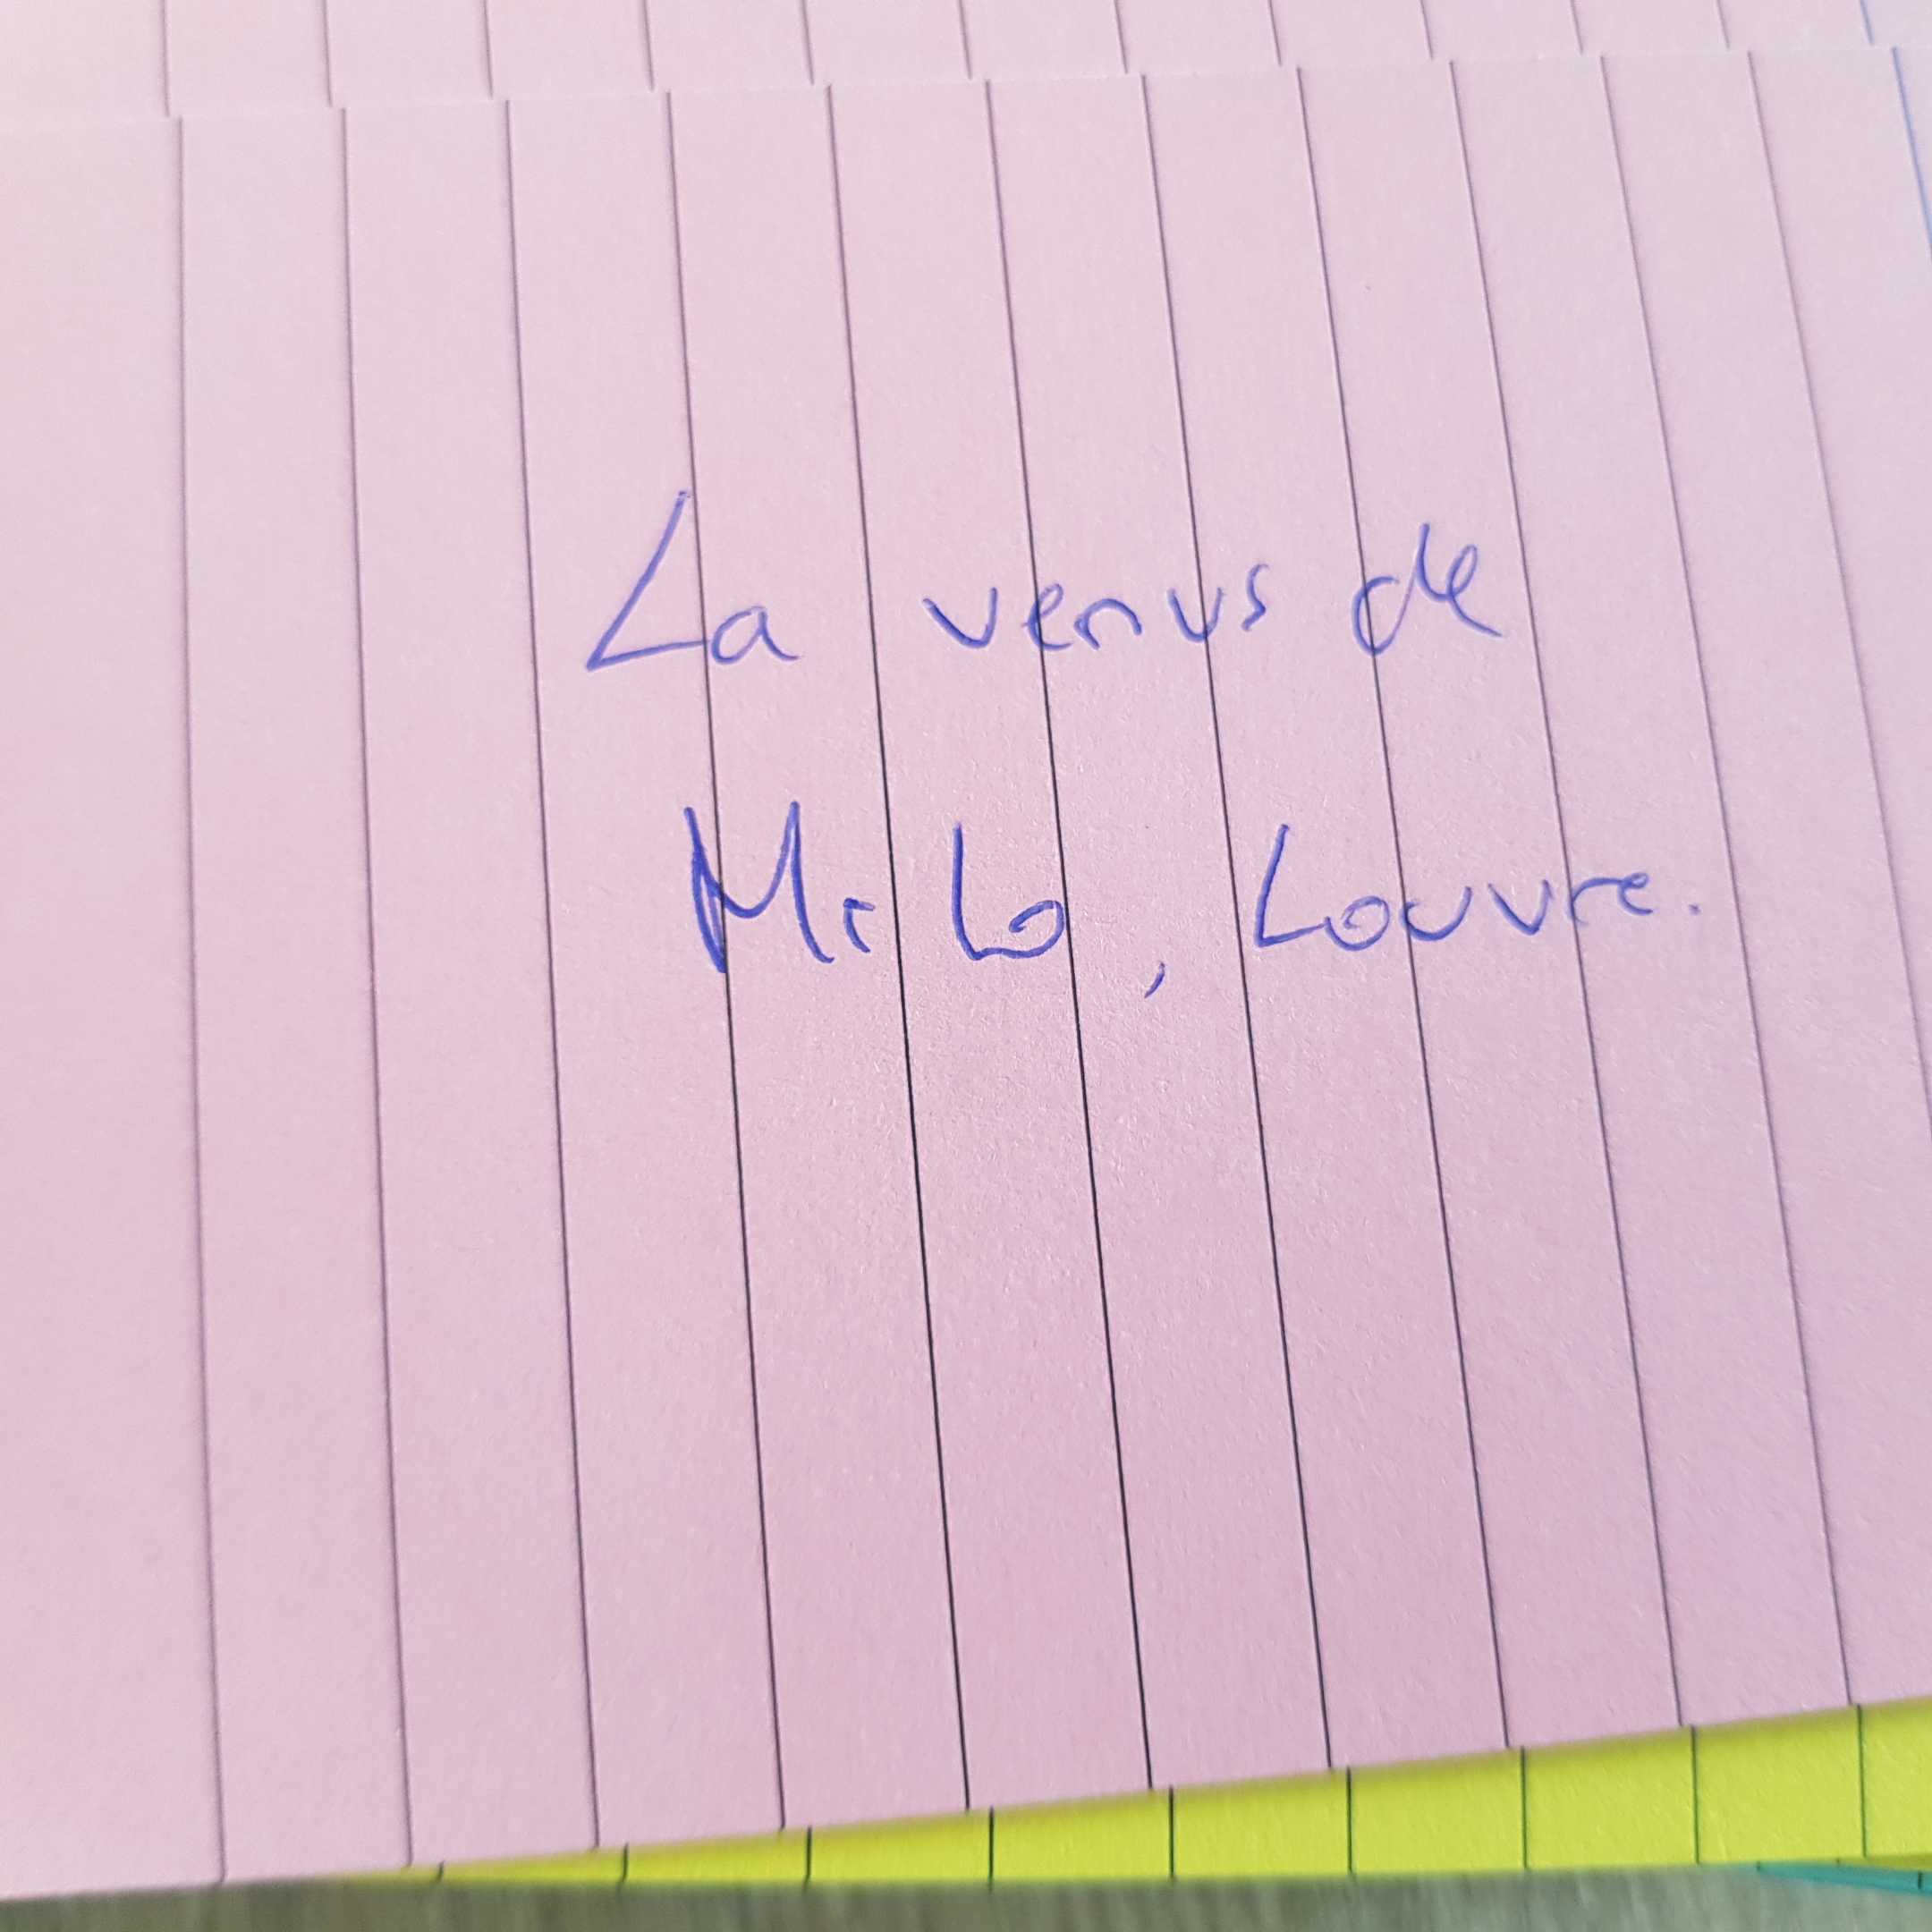 La venus de
Milo, Louvre.